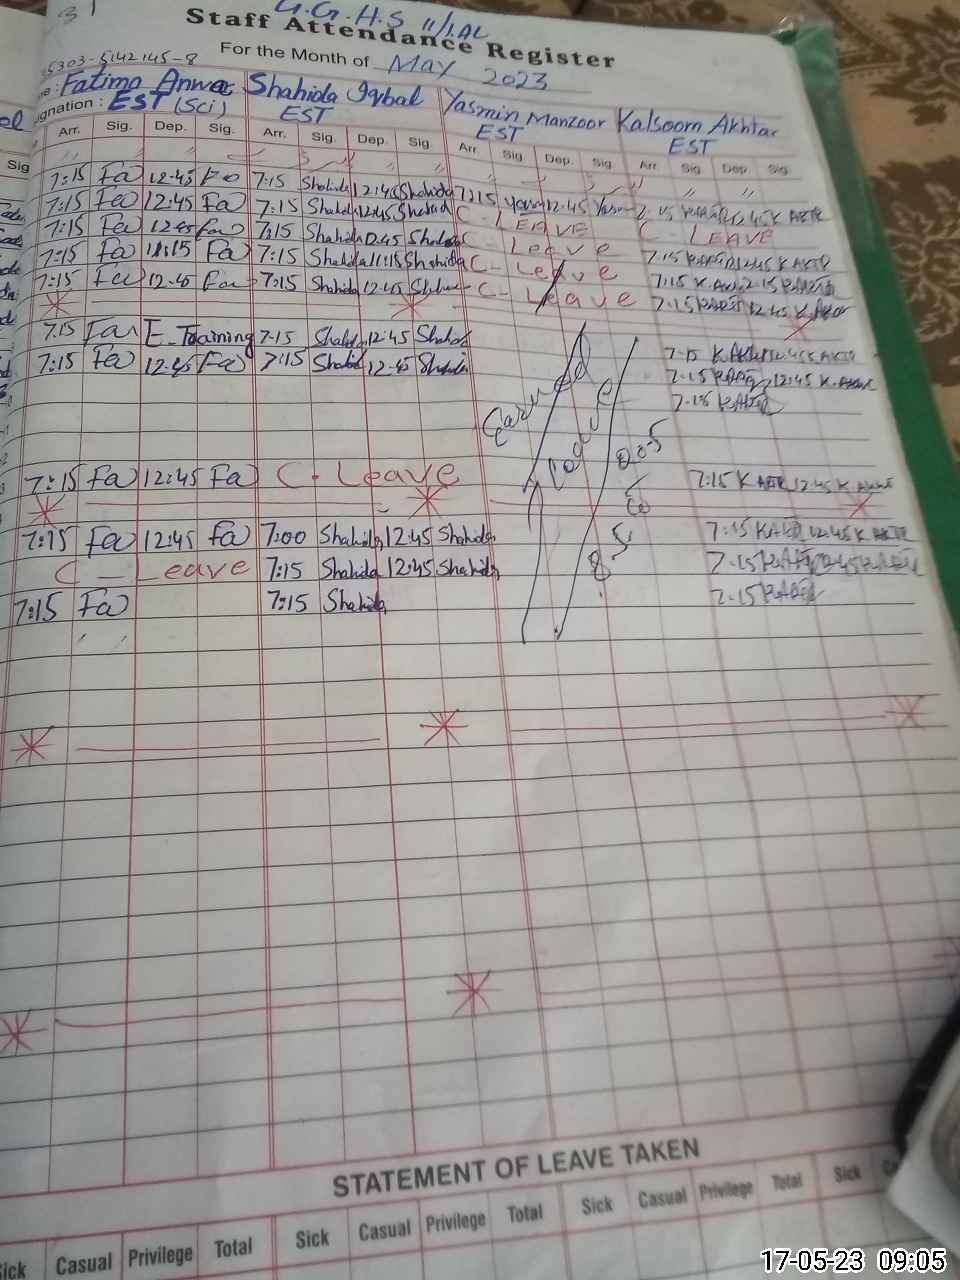 31
G.G.H.S 11/1.AL
Staff Attendance Register
For the Month of May 2023
35303-5142145-8
Fatima Anwar Shahida Iqbal Yasmin Manzoor Kalsoom Akhtar
gnation : EST (Sci) EST EST EST
Arr. Sig. Dep. Sig. Arr. Sig. Dep. Sig. Arr. Sig Dep. Sig. Arr. Sig Dep Sig
7:15 Fa 12:45 Fa 7:15 Shahida 12:45 Shahida 7:15 Yasm 12:45 Yasm 7:15 K AKTR 12:45 K AKTR
7:15 Fa 12:45 Fa 7:15 Shahid 12:45 Shahid C- LEAVE C- LEAVE
7:15 Fa 12:45 Fa 7:15 Shahida 12:45 Shahida C- Leave 7:15 K AKTR 12:45 K AKTR
7:15 Fa 11:15 Fa 7:15 Shahida 11:15 Shahida C- Leave 7:15 K.AKTR
7:15 Fa 12:45 Fa 7:15 Shahida 12:45 Shahida C- Leave 7:15 K AKTR 12:45 K.AKTR
7:15 Fa E-Training 7:15 Shahid 12:45 Shahid 7:15 K.AKTR 12:45 K AKTR
7:15 Fa 12:45 Fa 7:15 Shahid 12:45 Shahida 7:15 K AKTR 12:45 K.AKTR
7:15 K AKTR
Earned Leave
7:15 Fa 12:45 Fa C. Leave 7:15 K AKTR 12:45 K AKTR
7:15 Fa 12:45 Fa 7:00 Shahida 12:45 Shahida 7:15 K AKTR 12:45 K AKTR
C - Leave 7:15 Shahida 12:45 Shahida 7:15 K AKTR 12:45 K AKTR
7:15 Fa 7:15 Shahida 7:15 K AKTR
STATEMENT OF LEAVE TAKEN
Sick Casual Privilege Total Sick Casual Privilege Total Sick Casual Privilege Total Sick
17-05-23 09:05